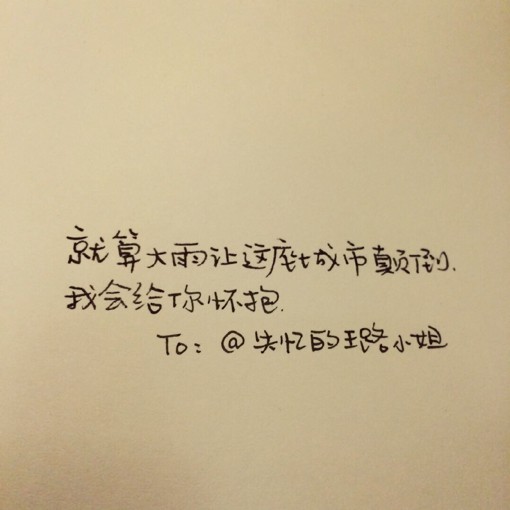 就算大雨让这座城市颠倒.
我会给你怀抱.
To: @失忆的王路小姐